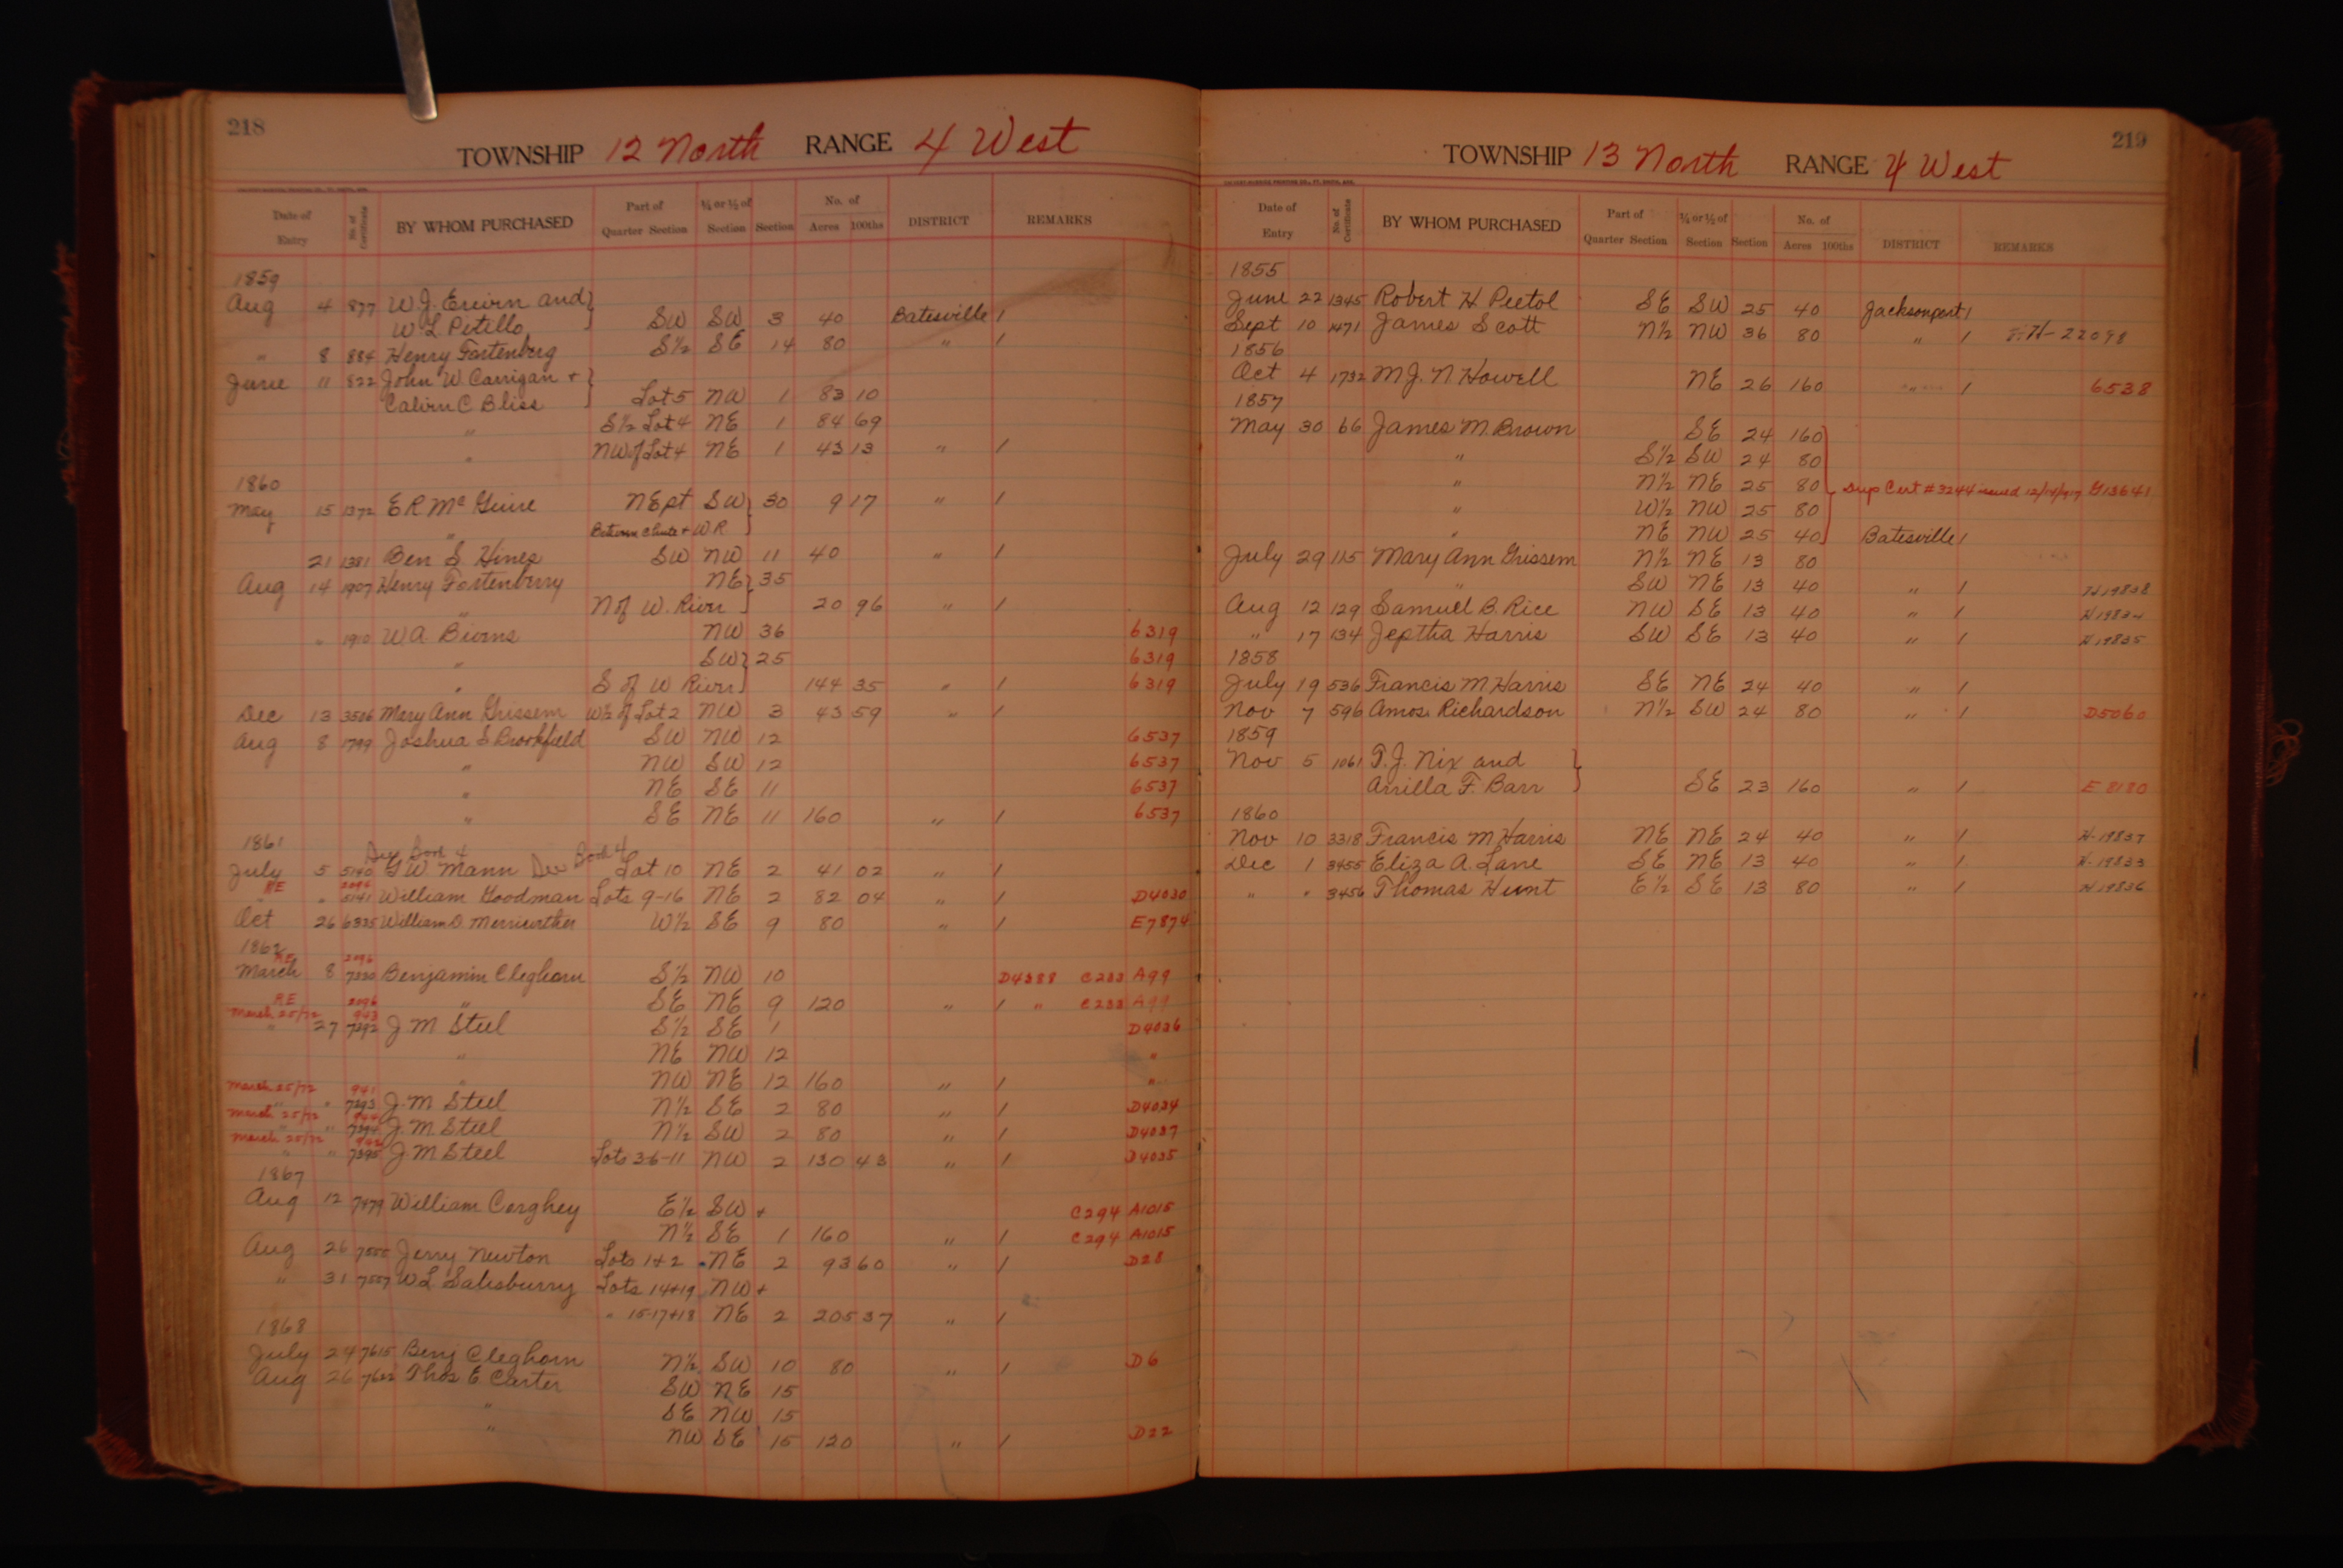 218
TOWNSHIP 12 North RANGE 4 West
Date of Entry No. of Certificate BY WHOM PURCHASED Part of Quarter Section ¼ or ½ of Section Section No. of Acres 100ths DISTRICT REMARKS
1859
Aug 4 877 W.J. Erwin and
W L Pitillo SW SW 3 40 Batesville /
" 8 884 Henry Fortenberg S½ SE 14 80 " /
June 11 822 John W. Carrigan +
Calvin C Bliss Lot 5 NW 1 83 10
" S½ Lot 4 NE 1 84 69
" NW of Lot 4 NE 1 43 13 " /
1860
May 15 1372 E R McGuire NE pt SW 30 9 17 " /
" Between Chute + W R
21 1381 Ben S Hines SW NW 11 40 " /
Aug 14 1907 Henry Fortenberry NE 35
" N of W. River 20 96 " /
" 1910 W A Bivens NW 36 6319
" SW 25 6319
" S of W River 144 35 " / 6319
Dec 13 3506 Mary Ann Grissem W½ of Lot 2 NW 3 43 59 " /
Aug 8 1799 Joshua S Brookfield SW NW 12 6537
" NW SW 12 6537
" NE SE 11 6537
" SE NE 11 160 " / 6537
1861
July 5 5140 G W Mann Dee Book 4 Lot 10 NE 2 41 02 " /
RE 2096
" 5141 William Goodman Lots 9-16 NE 2 82 04 " / D4030
Oct 26 6325 William D. Merriwether W½ SE 9 80 " / E7874
1862
RE 2096
March 8 7330 Benjamin Cleghorn S½ NW 10 D4388 C233 A99
RE 2096
" SE NE 9 120 " / " C233 A99
March 25/72 943
" 27 7392 J. M Steel S½ SE 1 D4036
" NE NW 12 "
" NW NE 12 160 " / "
March 25/72 941
" " 7393 J. M Steel N½ SE 2 80 " / D4034
March 25/72 944
" " 7394 J. M Steel N½ SW 2 80 " / D4037
March 25/72 942
" " 7395 J. M Steel Lots 3-6-11 NW 2 130 43 " / D4035
1867
Aug 12 7479 William Corghey E½ SW + C294 A1015
N½ SE 1 160 " / C294 A1015
Aug 26 Jerry Newton Lots 1+2 NE 2 93 60 " / D28
" 31 7557 W L Salisburry Lots 14+19 NW +
" 15-17+18 NE 2 205 37 " /
1868
July 24 7615 Benj Cleghorn N½ SW 10 80 " / D6
Aug 26 7622 Thos E Carter SW NE 15
" SE NW 15
" NW SE 15 120 " / D22
219
TOWNSHIP 13 North RANGE 4 West
Date of Entry No. of Certificate BY WHOM PURCHASED Part of Quarter Section ¼ or ½ of Section Section No. of Acres 100ths DISTRICT REMARKS
1855
June 22 1345 Robert H Peetol SE SW 25 40 Jacksonport /
Sept 10 1471 James Scott N½ NW 36 80 " / H-22098
1856
Oct 4 1732 M J. N Howell NE 26 160 " / 6538
1857
May 30 66 James M. Brown SE 24 160
" S½ SW 24 80
" N½ NE 25 80 Dup Cert #3244 issued 12/14/1917 G13641
" W½ NW 25 80
" NE NW 25 40 Batesville /
July 29 115 Mary Ann Grissem N½ NE 13 80
" SW NE 13 40 " / H19838
Aug 12 129 Samuel B. Rice NW SE 13 40 " / H19834
" 17 134 Jeptha Harris SW SE 13 40 " / H19835
1858
July 19 536 Francis M Harris SE NE 24 40 " /
Nov 7 596 Amos Richardson N½ SW 24 80 " / D5060
1859
Nov 5 1061 T. J. Nix and
Arrilla F. Barr SE 23 160 " / E8180
1860
Nov 10 3318 Francis M Harris NE NE 24 40 " / H-19837
Dec 1 3455 Eliza A. Lane SE NE 13 40 " / H-19833
" " 3456 Thomas Hunt E½ SE 13 80 " / H19836